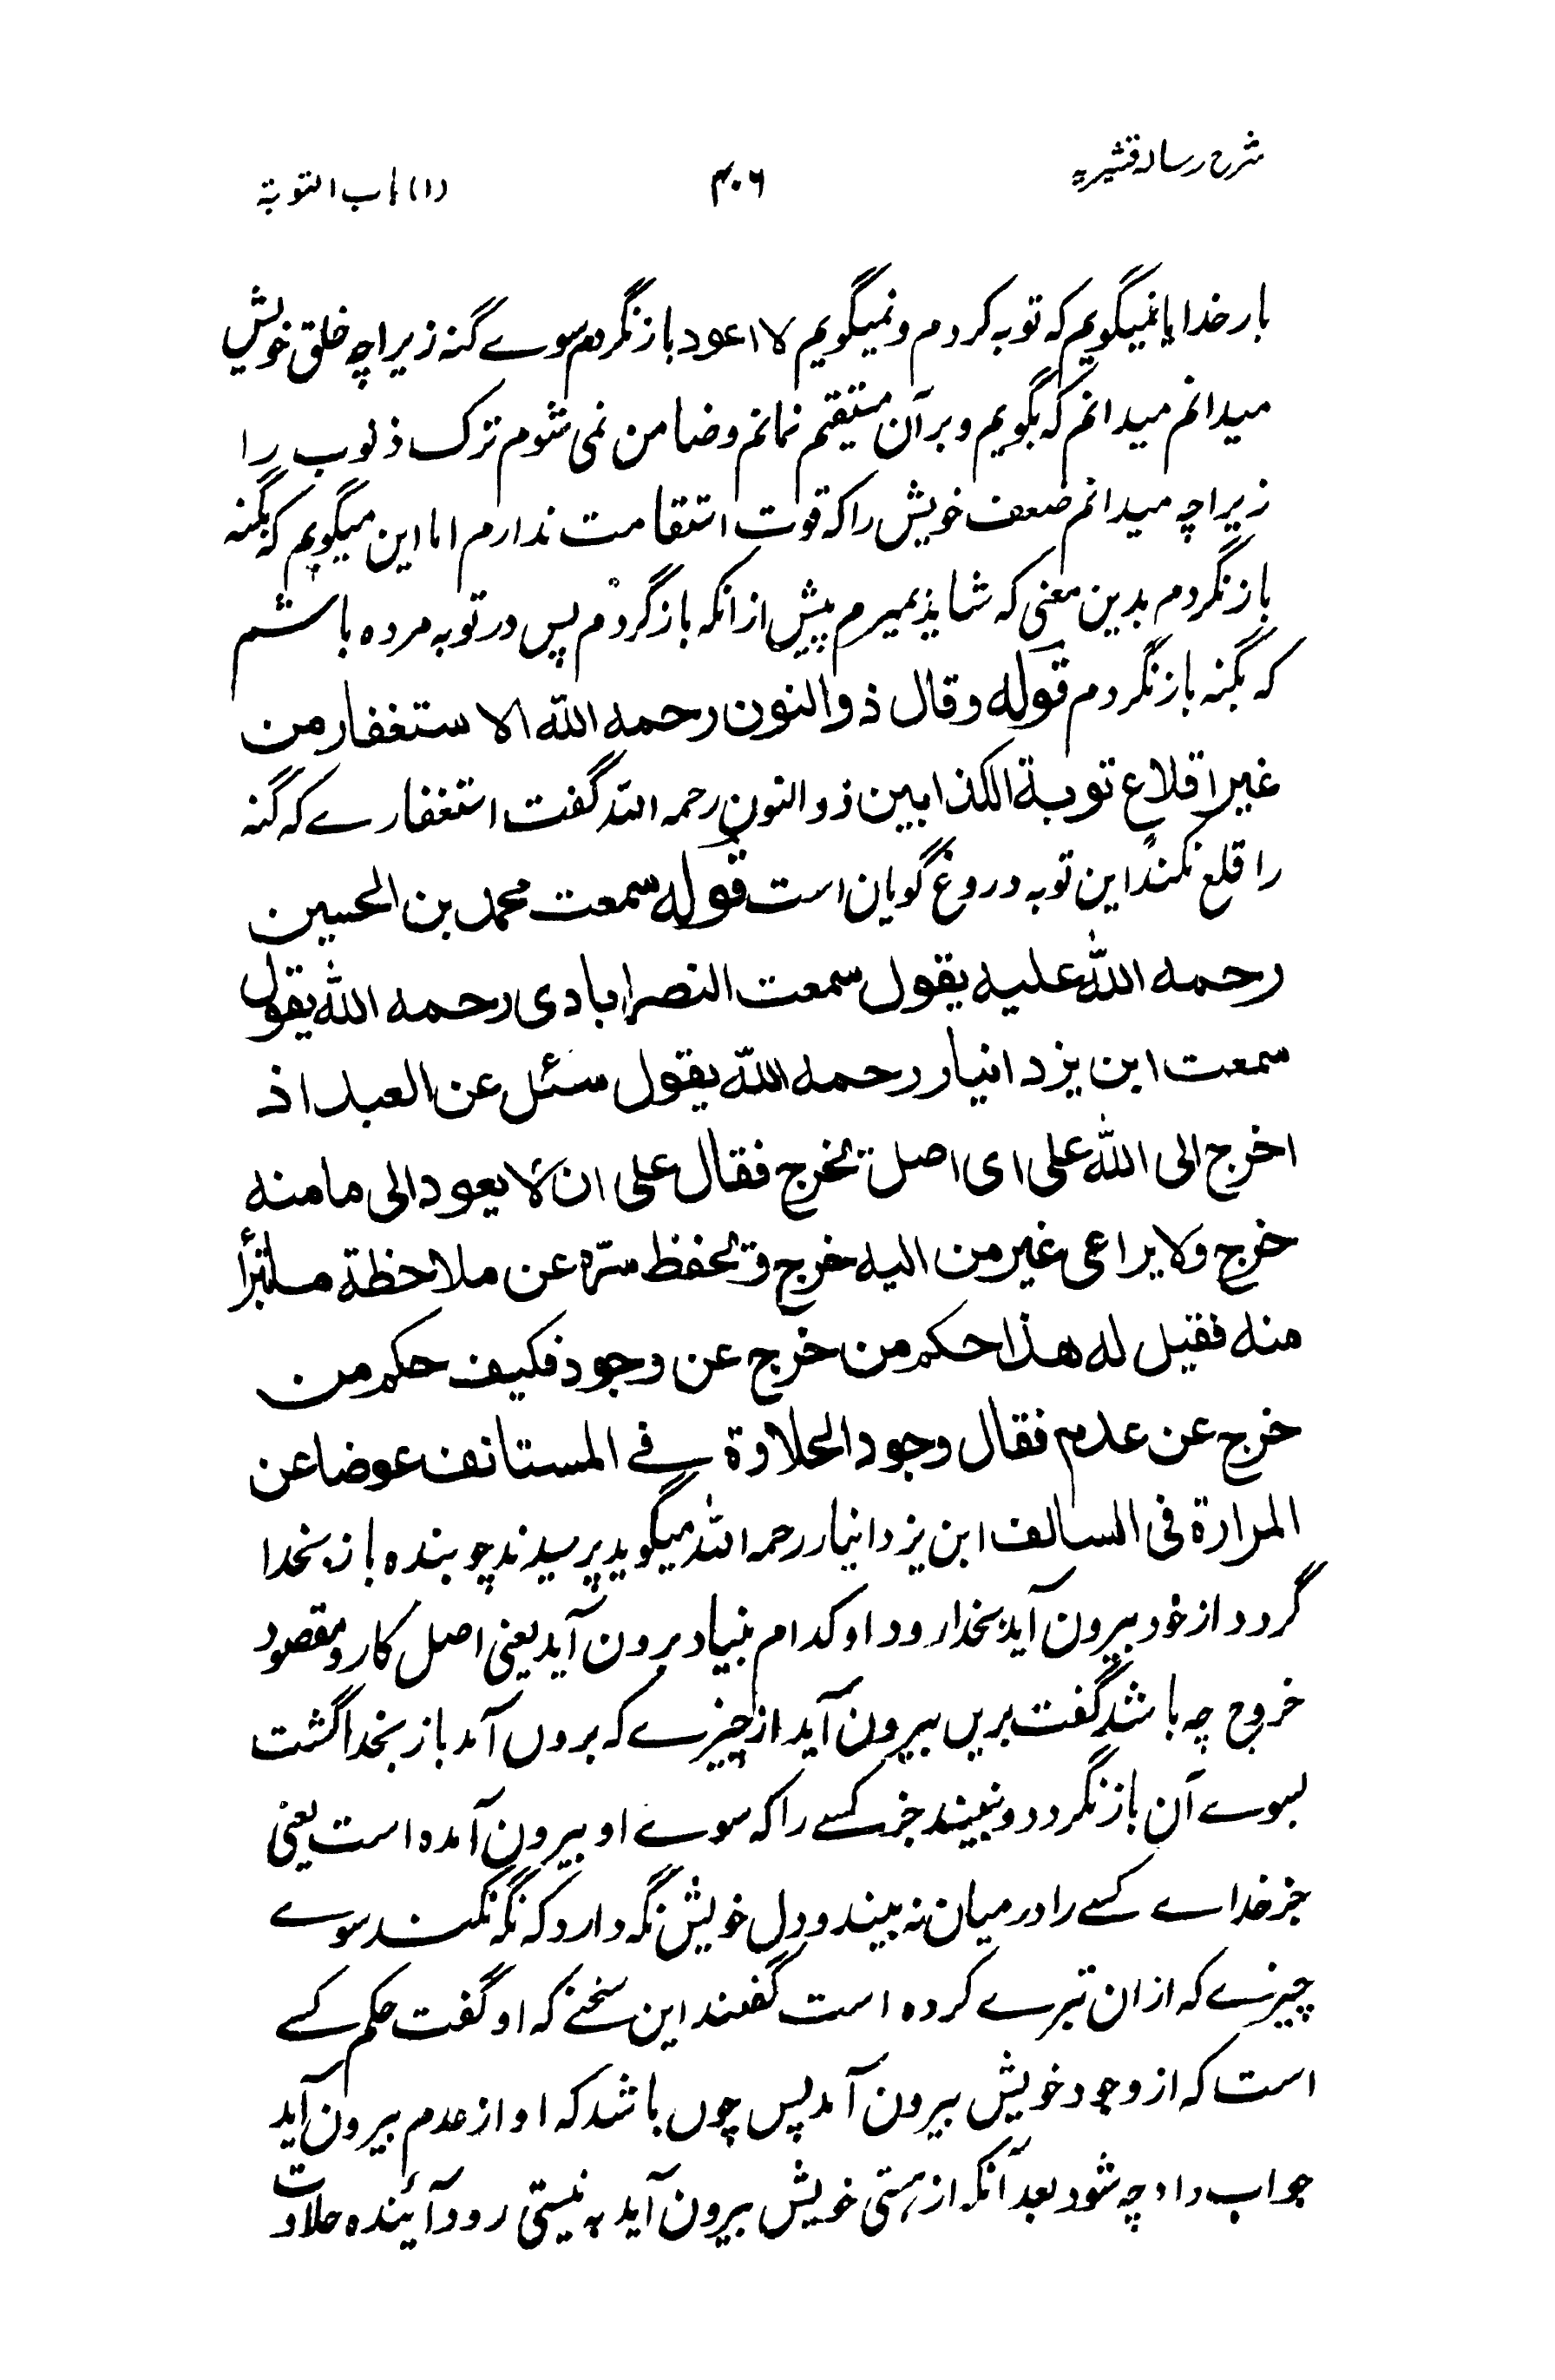 شرح رسالہ قشیریہ ۴۰۶ (۱) باب التوبۃ
بار خدایا نمیگویم کہ توبہ کردم و نمیگویم لا اعود باز نگردم سوے گنہ زیراچہ خلق خویش
میدانم میدانم کہ بگویم و بر آن مستقیم نمانم و ضامن نمی شوم ترک ذنوب را
زیراچہ میدانم ضعف خویش را کہ قوت استقامت ندارم اما این میگویم کہ بگنہ
باز نگردم بدین معنی کہ شاید بمیرم پیش ازانکہ باز گردم پس در توبہ مردہ باشم
کہ بگنہ باز نگردم قولہ وقال ذوالنون رحمہ اللہ الاستغفار من
غیر اقلاع توبۃ الکذابین ذوالنون رحمہ اللہ گفت استغفارے کہ گنہ
را قلع نکند این توبہ دروغ گویان است قولہ سمعت محمد بن الحسین
رحمہ اللہ علیہ یقول سمعت النصرابادی رحمہ اللہ یقول
سمعت ابن یزدانیار رحمہ اللہ یقول سئل عن العبد اذ
اخرج الی اللہ علی ای اصل تخرج فقال علی ان لا یعود الی ما منہ
خرج ولا یراعی غیر من الیہ خرج و تحفظ سرّہ عن ملاحظة ما تبرأ
منہ فقیل لہ هذا حکم من خرج عن وجود فکیف حکم من
خرج عن عدم فقال وجود الحلاوة فے المستانف عوضا عن
المرارة فی السالف ابن یزدانیار رحمہ اللہ میگوید پرسیدند چو بندہ باز بخدا
گردد از خود بیرون آید بخدا رود او کدام بنیاد برون آید یعنی اصل کار و مقصود
خروج چہ باشد گفت بریں بیرون آید از چیزے کہ بروں آمد باز بخدا گشت
بسوے آن باز نگردد و نبیند جز کسے را کہ سوے او بیرون آمدہ است یعنی
جز خداے کسے را درمیان نہ بیند و دل خویش نگہ دارد کہ نگہ نکند سوے
چیزے کہ ازان تبرے کردہ است گفتند این سخنے کہ او گفت حکم کسے
است کہ از وجود خویش بیرون آمد پس چوں باشد کہ او از عدم بیرون آید
جواب داد چہ شود بعد آنکہ از ہستی خویش بیرون آید بہ نیستی رود آئندہ حلاوت